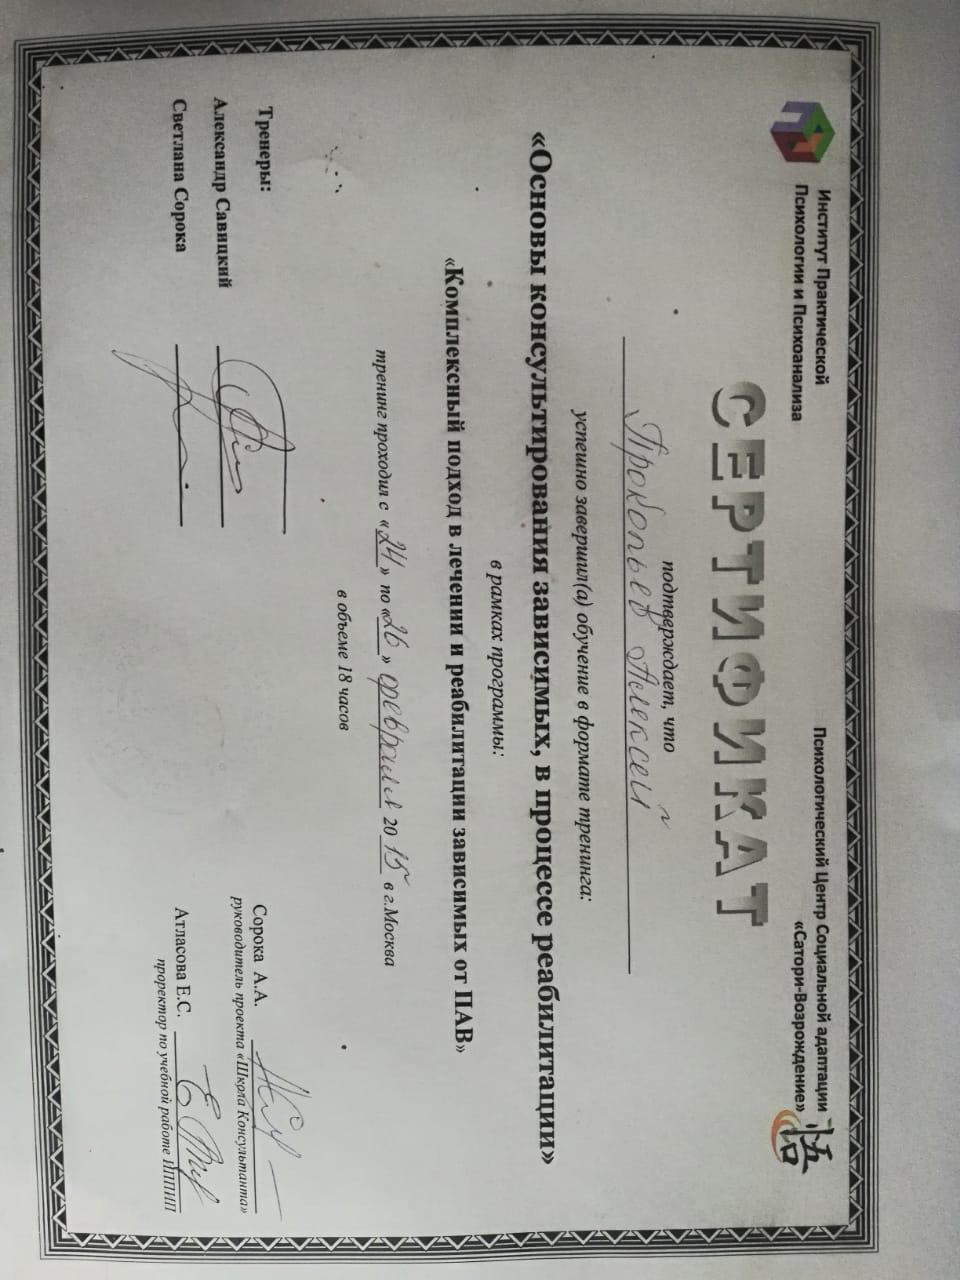 Институт Практической
Психологии и Психоанализа
Психологический Центр Социальной адаптации
«Сатори-Возрождение»
悟
СЕРТИФИКАТ
подтверждает, что
Прокопьев Алексей
успешно завершил(а) обучение в формате тренинга:
«Основы консультирования зависимых, в процессе реабилитации»
в рамках программы:
«Комплексный подход в лечении и реабилитации зависимых от ПАВ»
тренинг проходил с «24» по «26» февраля 2015 в г.Москва
в объеме 18 часов
Тренеры:
Александр Савицкий
Светлана Сорока
Сорока А.А.
руководитель проекта «Школа Консультанта»
Атласова Е.С.
проректор по учебной работе ИППИП